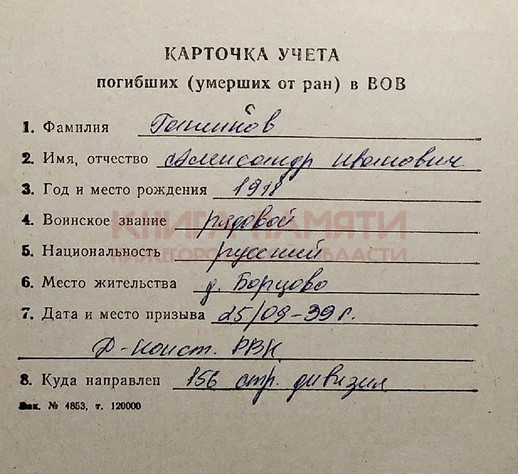 КАРТОЧКА УЧЕТА
погибших (умерших от ран) в ВОВ
1. Фамилия
2. Имя, отчество Александр Иванович
3. Год и место рождения 1918
4. Воинское звание рядовой
КНИГА ПАМЯТИ
5. Национальность русский
НИЖЕГОРОДСКОЙ ОБЛАСТИ
6. Место жительства д. Борцово
7. Дата и место призыва 25/09-39 г.
Д-Конст. РВК
8. Куда направлен 156 стр. дивизия
Зак. № 4853, т. 120000